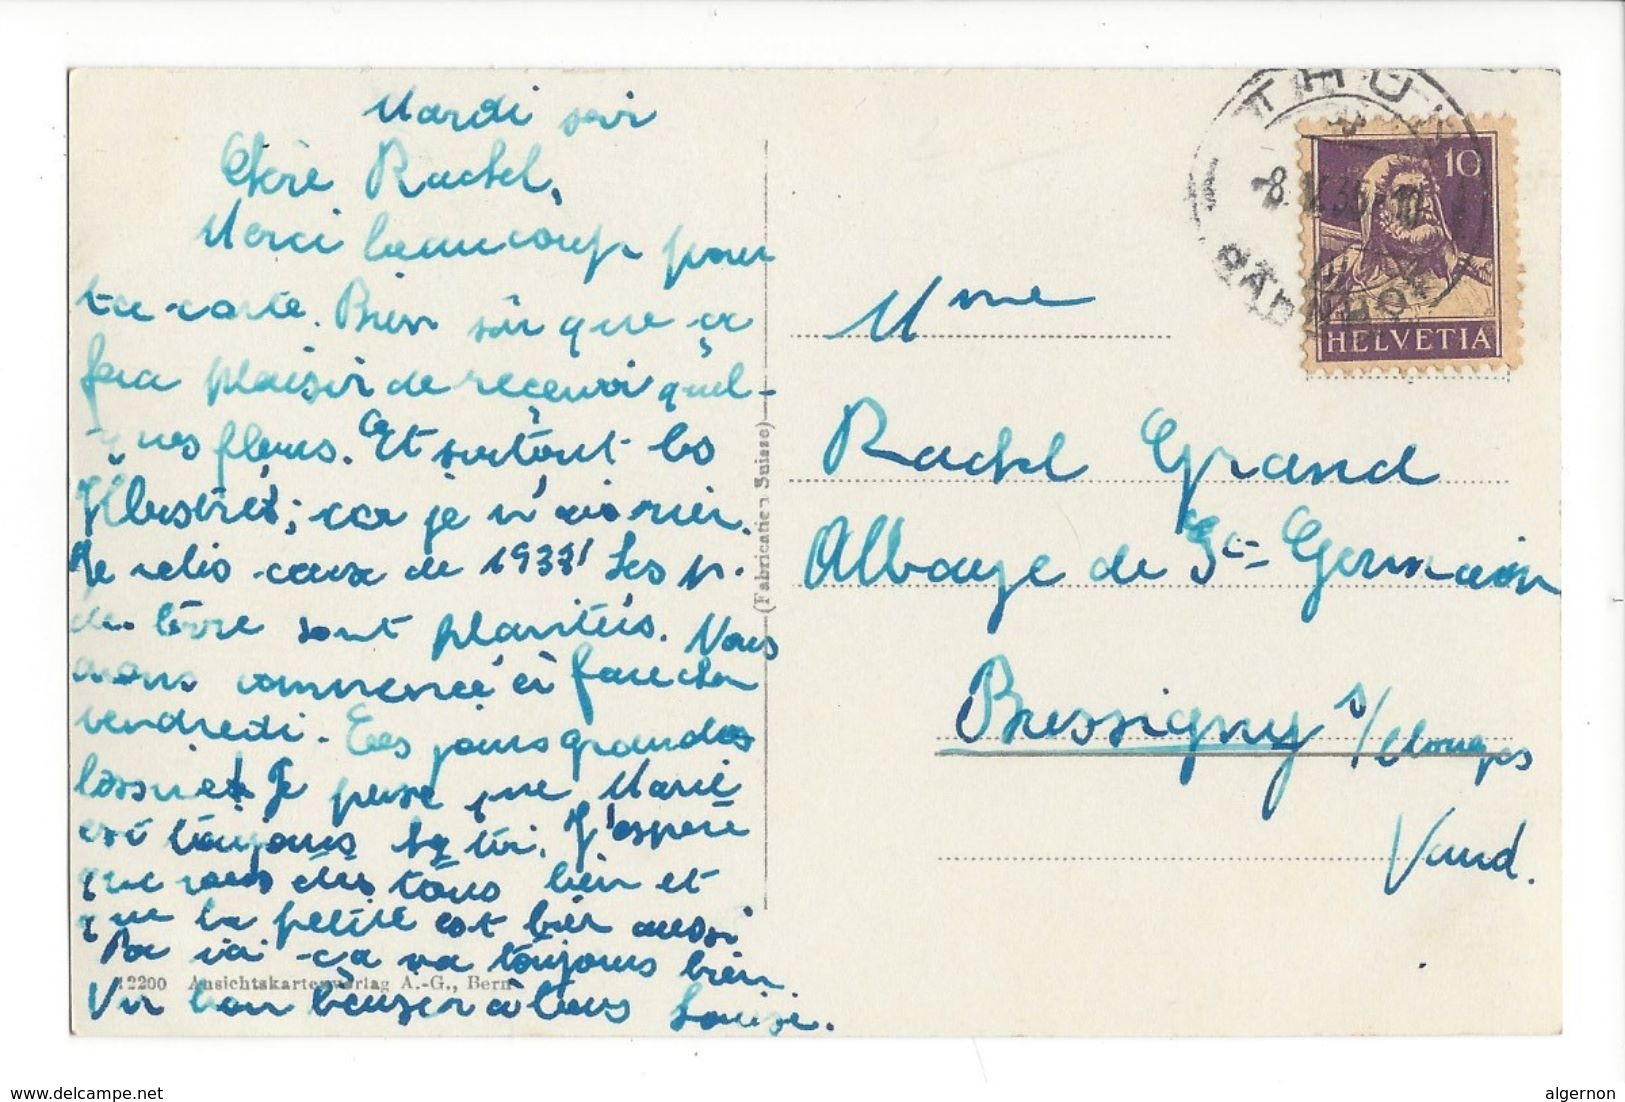 Mardi soir
Chère Rachel,
Merci beaucoup pour
ta carte. Bien sûr que ça
fera plaisir de recevoir quel-
ques fleurs. Et surtout les
Illustrés; car je n'ai rien.
Je relis ceux de 1933! Les p.
de terre sont plantées. Nous
avons commencé à faucher
vendredi. Ces jours grandes
lessives! Je pense que Marie
est toujours là toi. J'espère
que vous êtes tous bien et
que la petite est bien aussi
Par ici ça va toujours bien
Un bon baiser à tous Louise.
12200 Ansichtskartenverlag A.-G., Bern
(Fabrication Suisse)
THUN
8. V. 36 10
BAHNHOF
10
HELVETIA
Mme
Rachel Grand
Abbaye de St- Germain
Bressigny s/Morges
Vaud.
www.delcampe.net
algernon